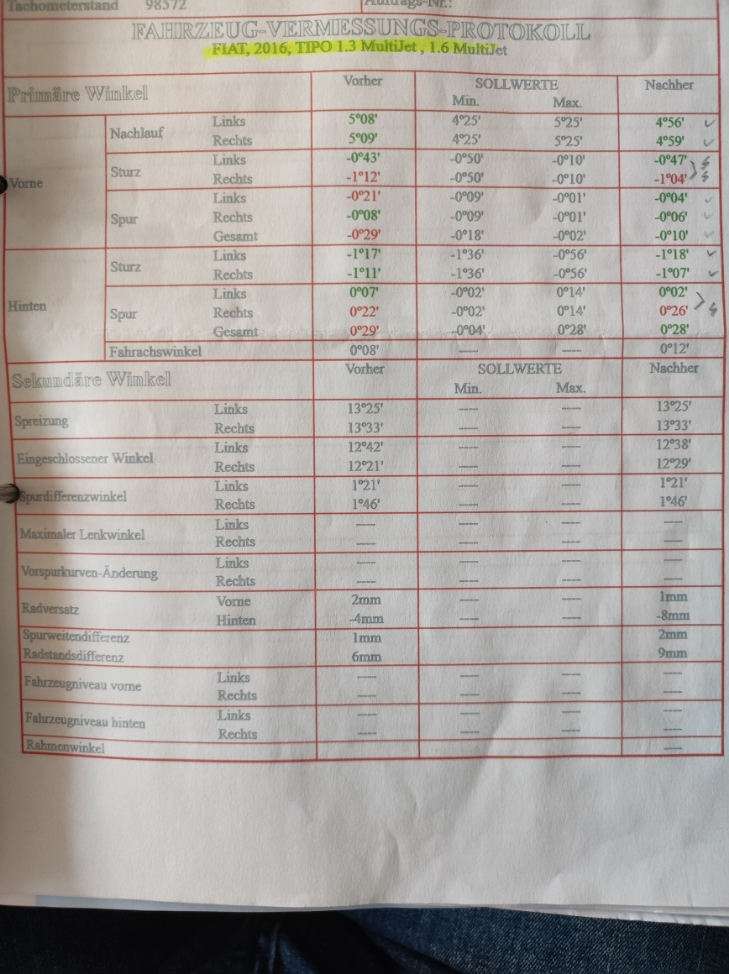 Tachometerstand 98572 Auftrags-Nr.:
FAHRZEUG-VERMESSUNGS-PROTOKOLL
FIAT, 2016, TIPO 1.3 MultiJet , 1.6 MultiJet
Primäre Winkel Vorher SOLLWERTE Nachher
Min. Max.
Vorne Nachlauf Links 5°08' 4°25' 5°25' 4°56'
Rechts 5°09' 4°25' 5°25' 4°59'
Sturz Links -0°43' -0°50' -0°10' -0°47'
Rechts -1°12' -0°50' -0°10' -1°04'
Spur Links -0°21' -0°09' -0°01' -0°04'
Rechts -0°08' -0°09' -0°01' -0°06'
Gesamt -0°29' -0°18' -0°02' -0°10'
Hinten Sturz Links -1°17' -1°36' -0°56' -1°18'
Rechts -1°11' -1°36' -0°56' -1°07'
Spur Links 0°07' -0°02' 0°14' 0°02'
Rechts 0°22' -0°02' 0°14' 0°26'
Gesamt 0°29' -0°04' 0°28' 0°28'
Fahrachswinkel 0°08' ---- ---- 0°12'
Sekundäre Winkel Vorher SOLLWERTE Nachher
Min. Max.
Spreizung Links 13°25' ---- ---- 13°25'
Rechts 13°33' ---- ---- 13°33'
Eingeschlossener Winkel Links 12°42' ---- ---- 12°38'
Rechts 12°21' ---- ---- 12°29'
Spurdifferenzwinkel Links 1°21' ---- ---- 1°21'
Rechts 1°46' ---- ---- 1°46'
Maximaler Lenkwinkel Links ---- ---- ---- ----
Rechts ---- ---- ---- ----
Vorspurkurven-Änderung Links ---- ---- ---- ----
Rechts ---- ---- ---- ----
Radversatz Vorne 2mm ---- ---- 1mm
Hinten -4mm ---- ---- -8mm
Spurweitendifferenz 1mm 2mm
Radstandsdifferenz 6mm 9mm
Fahrzeugniveau vorne Links ---- ---- ---- ----
Rechts ---- ---- ---- ----
Fahrzeugniveau hinten Links ---- ---- ---- ----
Rechts ---- ---- ---- ----
Rahmenwinkel ----